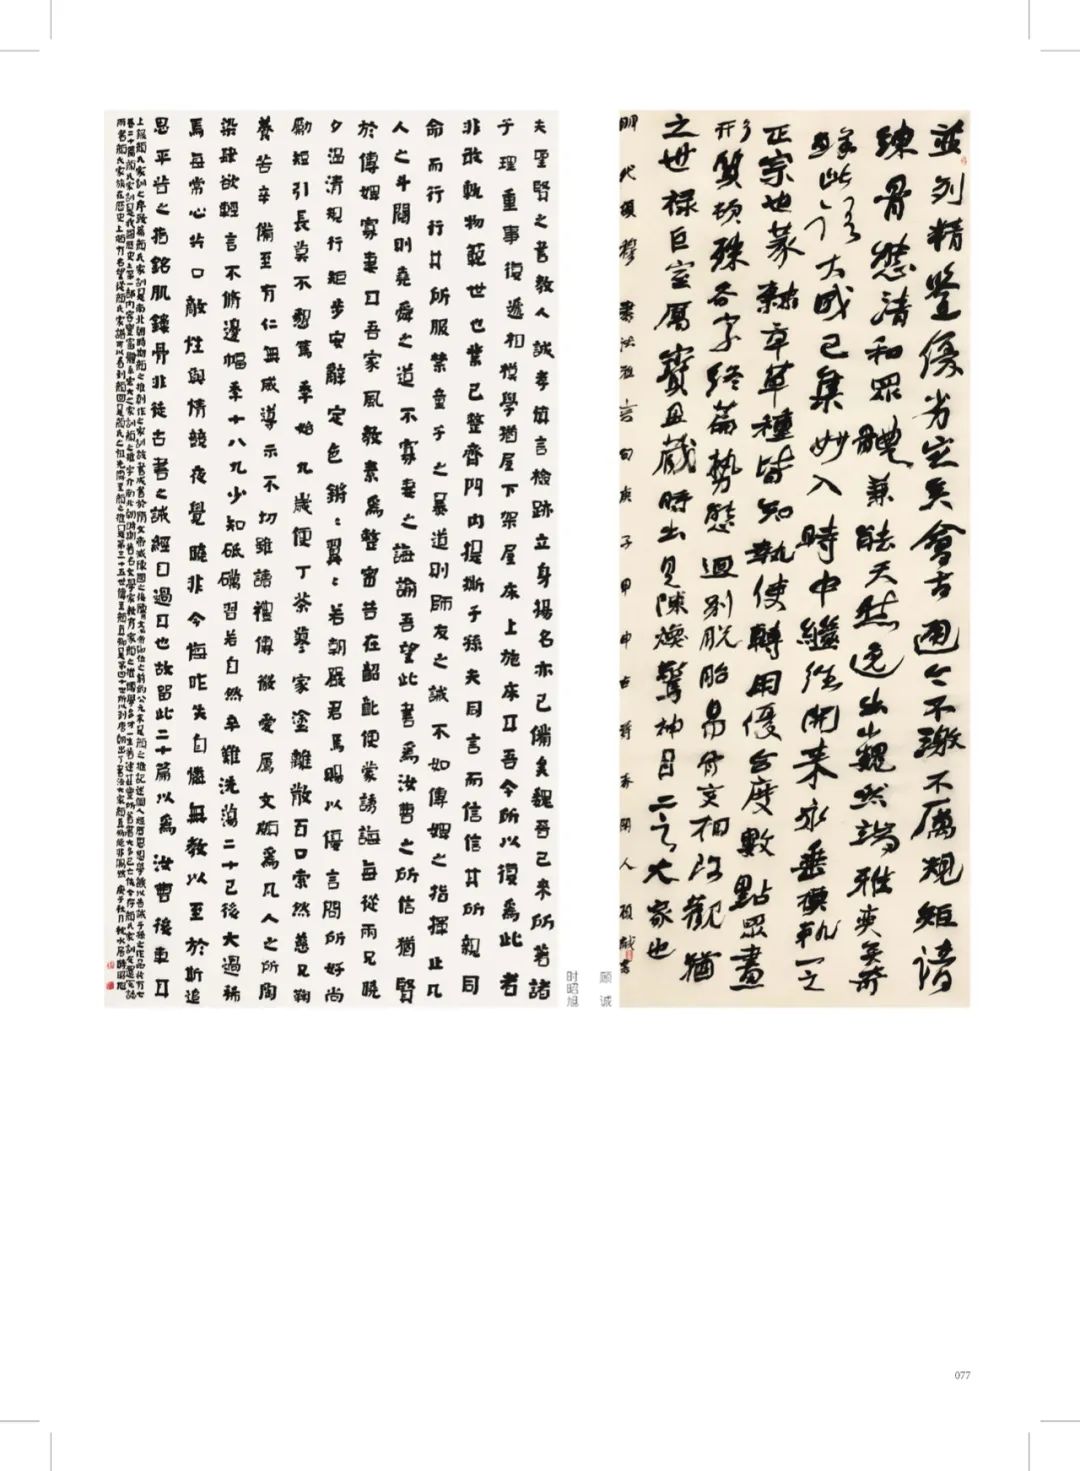 並列精鑒優劣定矣會古通今不激不厲規矩諳
練骨態清和眾體兼能天然逸出巍然端雅奕矣奇
鮮此謂大成已集妙入時中繼往開來永垂模軌一之
正宗也篆隸章草種皆知執使轉用優合度數點眾畫
形質頓殊各字終篇勢態迥別脫胎易骨變相改觀猶
之世祿巨室厲寶盈藏時出見陳煥驚神目二之大家也
明代項穆書法雅言句庚子甲申古
顾诚
时昭旭
夫聖賢之書教人誠孝慎言檢跡立身揚名亦已備矣魏晉已來所著諸
子理重事復遞相模學猶屋下架屋床上施床耳吾今所以復為此者
非敢軌物範世也業已整齊門内提撕子孫夫同言而信信其所親同
命而行行其所服禁童子之暴道則師友之誡不如傅婢之指揮止凡
人之斗鬩則堯舜之道不寡妻之誨諭吾望此書為汝曹之所信猶賢
於傅婢寡妻耳吾家風教素為整密昔在齠齔便蒙誘誨每從兩兄曉
夕溫清規行矩步安辭定色鏘〻翼〻若朝嚴君焉賜以優言問所好尚
勵短引長莫不懇篤季始九歲便丁荼蓼家塗離散百口索然慈兄鞠
養苦辛備至有仁無威導示不切雖讀禮傳微愛属文頗為凡人之所陶
染肆欲輕言不脩邊幅季十八九少知砥礪習若自然卒難洗蕩二十已後大過稀
焉每常心共口敵性與情競夜覺曉非今悔昨失自憐無教以至於斯追
思平昔之指銘肌鏤骨非徒古書之誡經目過耳也故留此二十篇以為汝曹後車耳
077